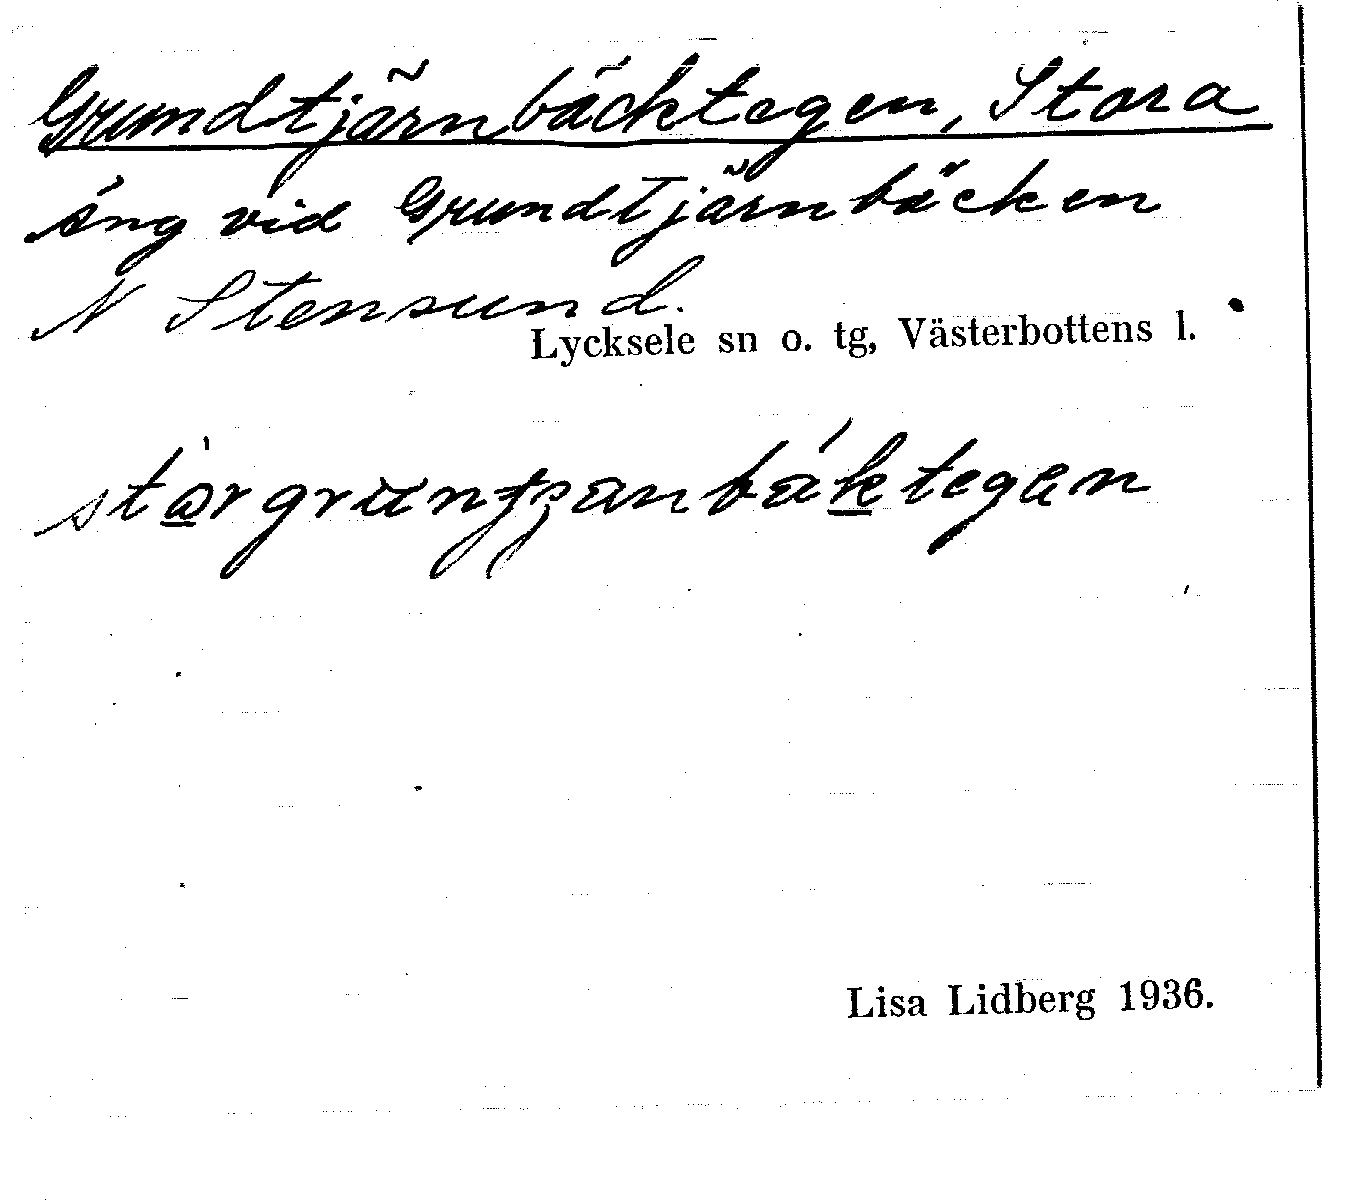 Grundtjärnbäcktegen, Stora
äng vid Grundtjärnbäcken
N Stensund.
Lycksele sn o. tg, Västerbottens l.
Lisa Lidberg 1936.